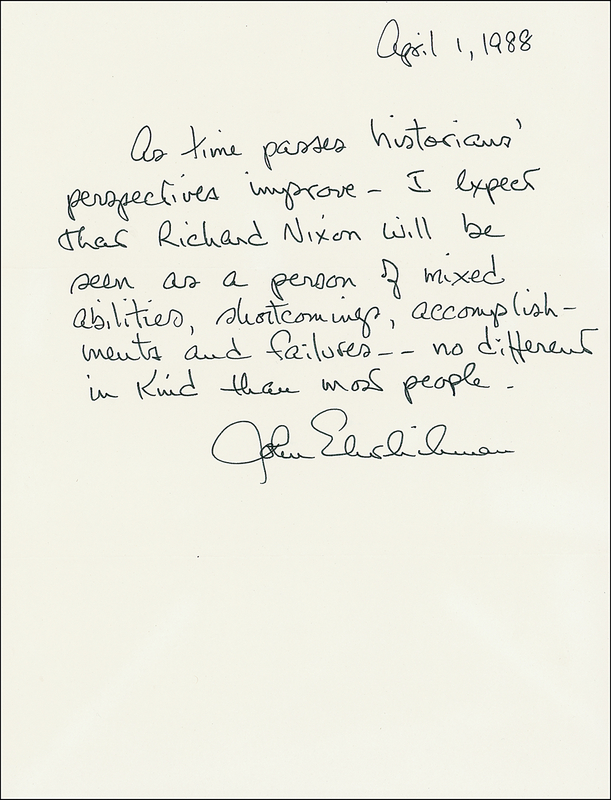 April 1, 1988
As time passes historians'
perspectives improve - I expect
that Richard Nixon will be
seen as a person of mixed
abilities, shortcomings, accomplish-
ments and failures -- no different
in kind than most people.
John Ehrlichman